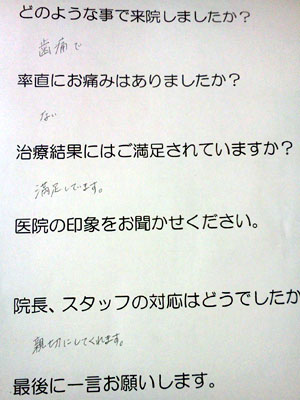 どのような事で来院しましたか?
歯痛で
率直にお痛みはありましたか?
ない
治療結果にはご満足されていますか?
満足しています。
医院の印象をお聞かせください。
院長、スタッフの対応はどうでしたか
親切にしてくれます。
最後に一言お願いします。